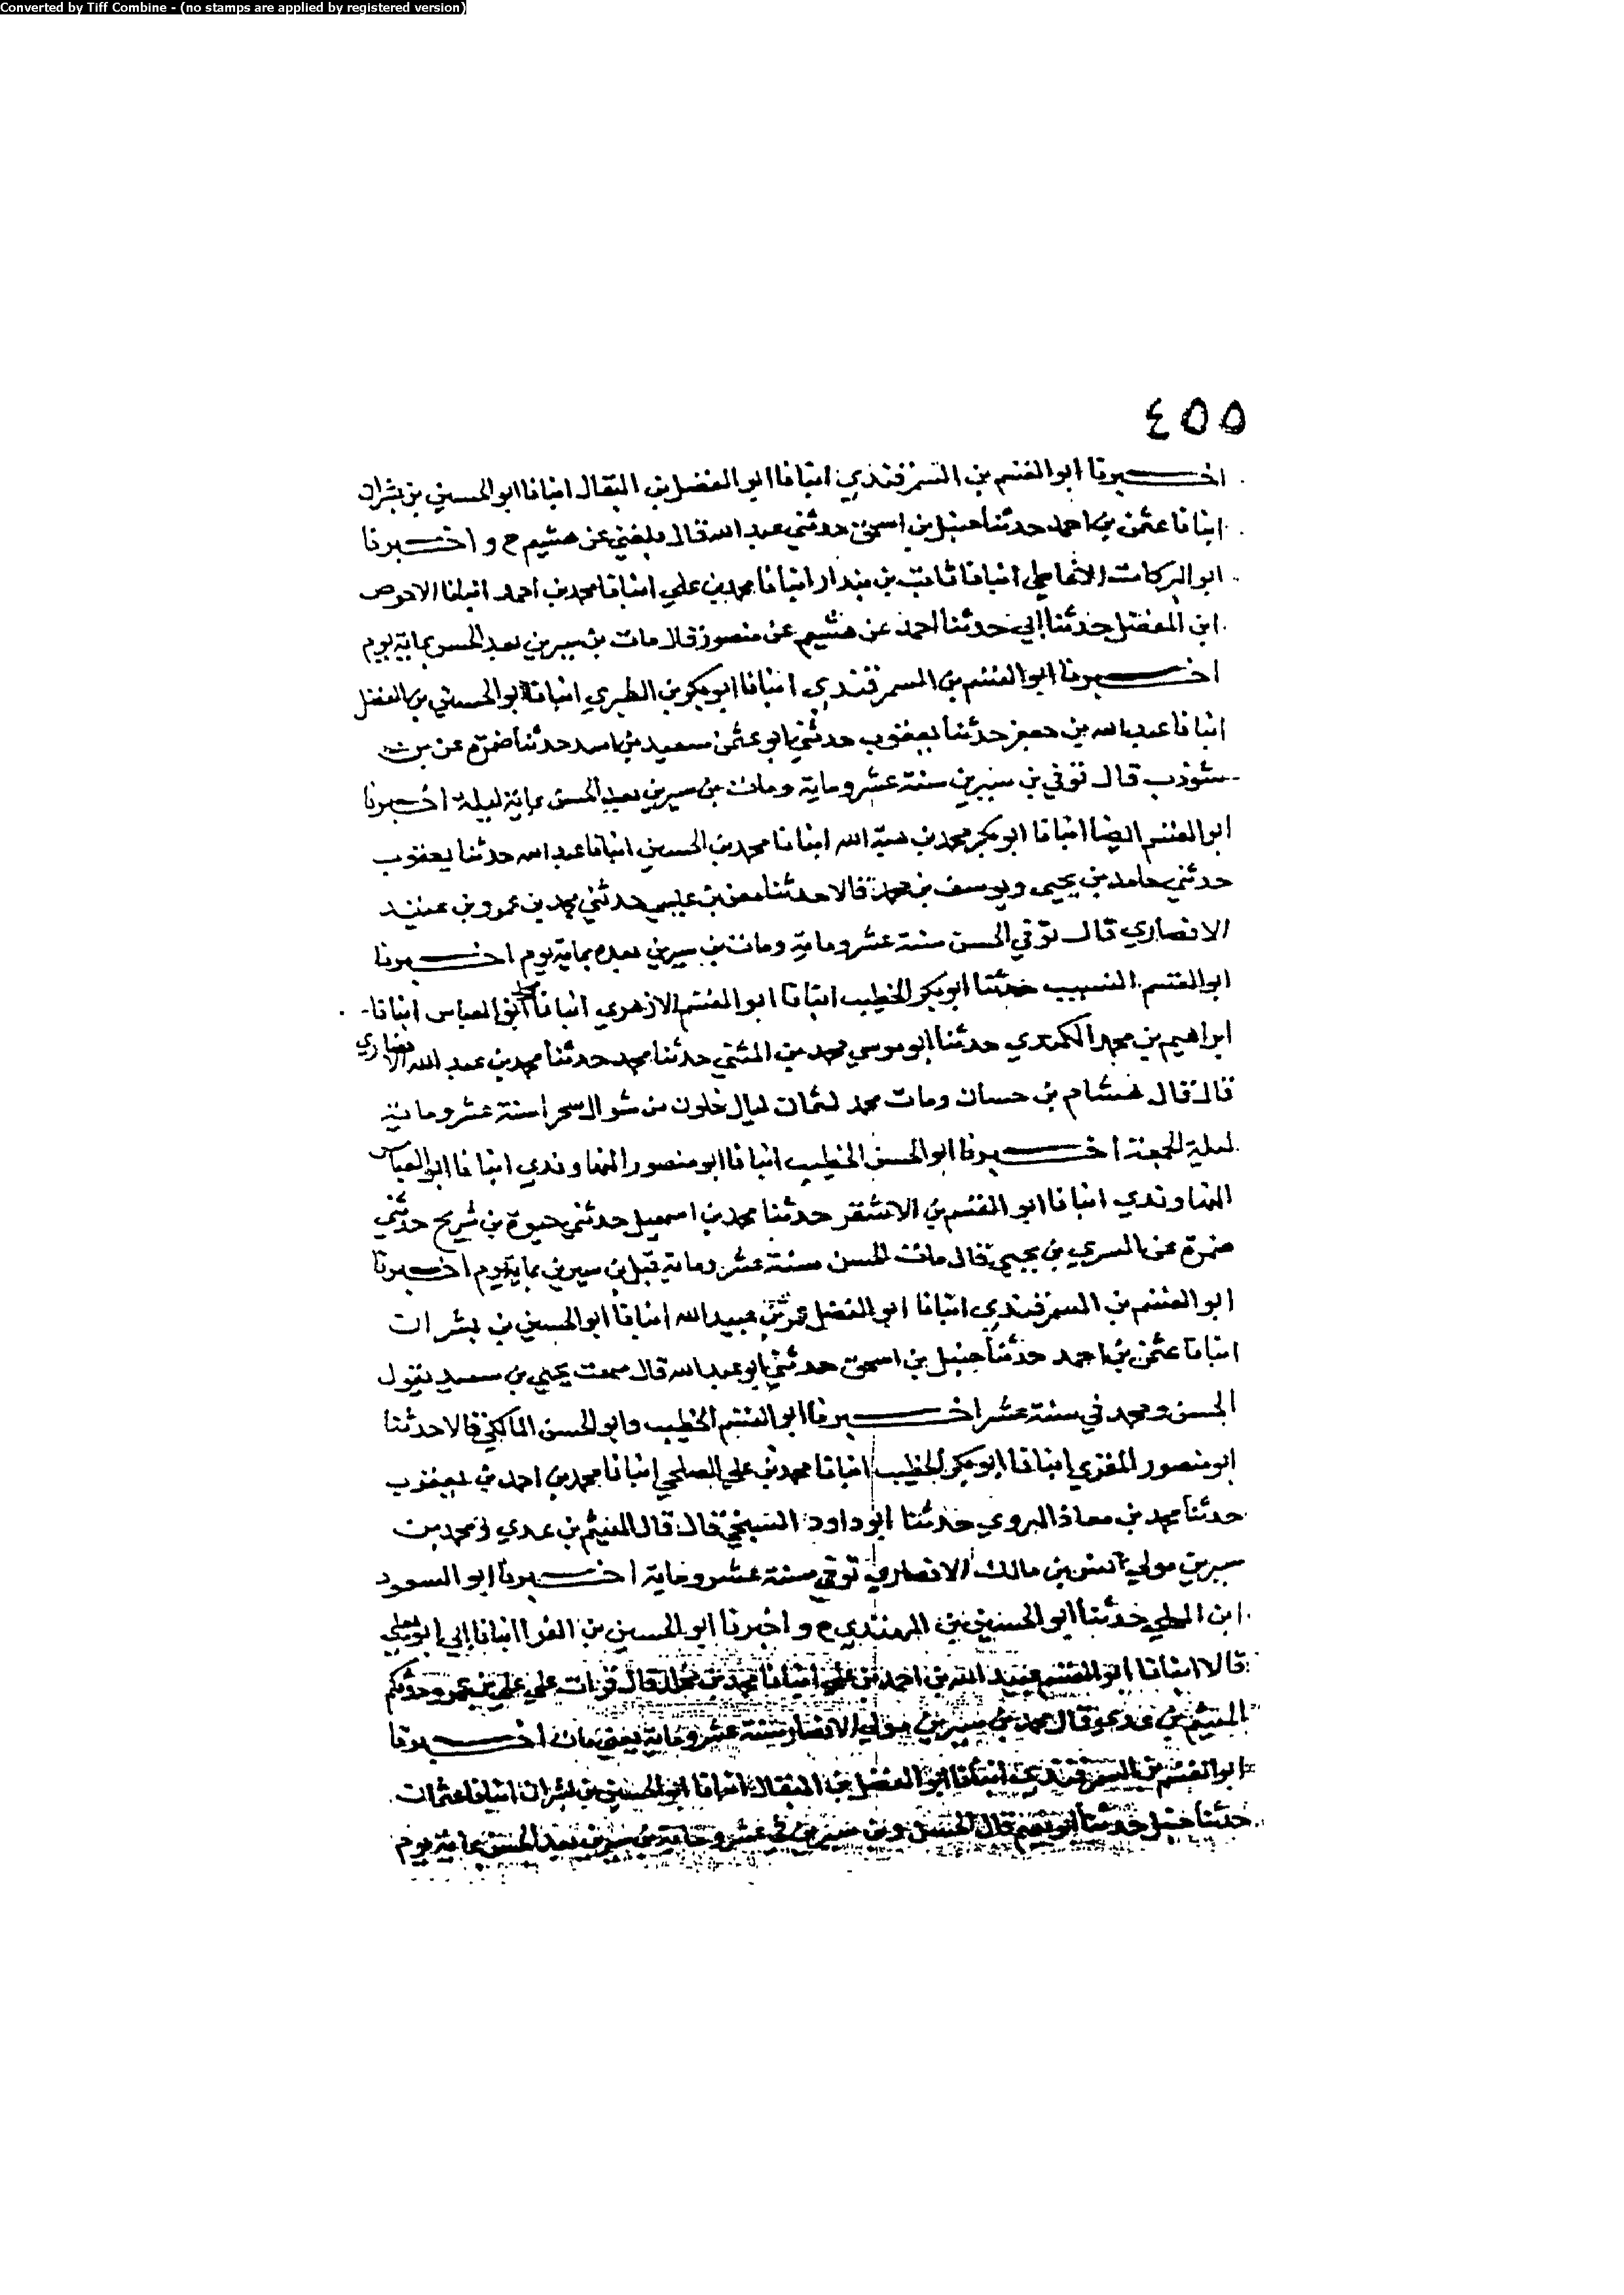 Converted by Tiff Combine - (no stamps are applied by registered version)
٤٥٥
اخبرنا ابو القسم بن السمرقندي انبانا ابو الفضل بن البقال انبانا ابو الحسين بن بشران
انبانا عثمن بن احمد حدثنا حنبل بن اسحق حدثني عبد الله قال بلغني عن هشيم ح و اخبرنا
ابو البركات الانماطي انبانا ثابت بن بندار انبانا محمد بن علي انبانا محمد بن احمد انبانا الاحوص
ابن المفضل حدثنا ابي حدثنا احمد عن هشيم عن منصور قال مات بن سيرين بعد الحسن بماية يوم
اخبرنا ابو القسم بن السمرقندي انبانا ابو بكر بن الطبري انبانا ابو الحسين بن الفضل
انبانا عبد الله بن جعفر حدثنا يعقوب حدثني ابو عثمن سعيد بن اسد حدثنا ضمرة عن بن
شوذب قال توفي بن سيرين سنة عشر وماية ومات بن سيرين بعد الحسن بماية ليلة اخبرنا
ابو القسم ايضا انبانا ابو بكر محمد بن هبة الله انبانا محمد بن الحسين انبانا عبد الله حدثنا يعقوب
حدثني حامد بن يحيى ويوسف بن محمد قالا حدثنا معن بن عيسى حدثني محمد بن عمرو بن عبيد
الانصاري قال توفي الحسن سنة عشر وماية ومات بن سيرين بعده بماية يوم اخبرنا
ابو القسم النسيب حدثنا ابو بكر الخطيب انبانا ابو القسم الازهري انبانا محمد بن العباس انبانا
ابراهيم بن محمد الكندي حدثنا ابو موسى محمد بن المثنى حدثنا محمد حدثنا محمد بن عبد الله الانصاري
قال قال هشام بن حسان ومات محمد لثمان ليال خلون من شوال سحرا سنة عشر وماية
ليلة الجمعة اخبرنا ابو الحسن الخطيب انبانا ابو منصور النهاوندي انبانا ابو العباس
النهاوندي انبانا ابو القسم بن الاشقر حدثنا محمد بن اسمعيل حدثني حيوة بن شريح حدثني
ضمرة عن السري بن يحيى قال مات الحسن سنة عشر وماية قبل بن سيرين بماية يوم اخبرنا
ابو القسم بن السمرقندي انبانا ابو الفضل عمر بن عبيد الله انبانا ابو الحسين بن بشران
انبانا عثمن بن احمد حدثنا حنبل بن اسحق حدثني ابو عبد الله قال سمعت يحيى بن سعيد يقول
الحسن ومحمد في سنة عشر اخبرنا ابو القسم الخطيب وابو الحسن المالكي قالا حدثنا
ابو منصور المقري انبانا ابو بكر الخطيب انبانا محمد بن علي الصلحي انبانا محمد بن احمد بن يعقوب
حدثنا محمد بن معاذ الهروي حدثنا ابو داود السنجي قال قال الهيثم بن عدي ومحمد بن
سيرين مولى انس بن مالك الانصاري توفي سنة عشر وماية اخبرنا ابو السعود
ابن المجلي حدثنا ابو الحسين بن المهتدي ح و اخبرنا ابو الحسين بن الفرا انبانا ابي ابو يعلى
قالا انبانا ابو القسم عبيد الله بن احمد بن علي انبانا محمد بن مخلد قال قرات على علي بن عمرو حدثكم
الهيثم بن عدي قال محمد بن سيرين مولى الانصار سنة عشر وماية يعني مات اخبرنا
ابو القسم بن السمرقندي انبانا ابو الفضل بن البقال انبانا ابو الحسين بن بشران انبانا عثمان
حدثنا حنبل حدثنا ابو نعيم قال الحسن وبن سيرين في عشر وماية بن سيرين بعد الحسن بماية يوم